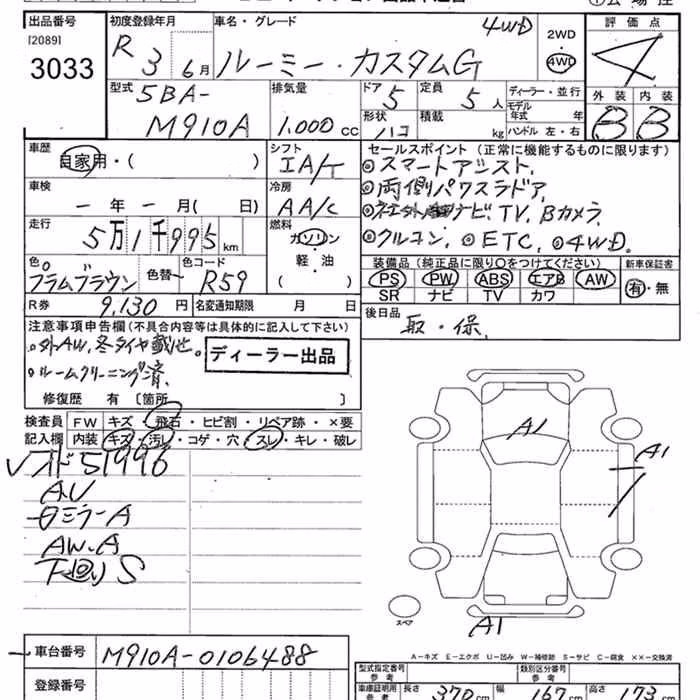 出品番号 初度登録年月 車名・グレード 4WD 評価点
[2089] R 3 6月 ルーミー・カスタムG 2WD 4
3033 4WD
型式 排気量 ドア 定員 ディーラー・並行 外装 内装
5BA- 5 5人 モデル年式 年 B B
M910A 1.000cc 形状 積載 ハンドル 左・右
ハコ kg
車歴 シフト セールスポイント (正常に機能するものに限ります)
自家用・( ) IA/T ◎スマートアシスト.
車検 冷房 ◎両側パワスラドア.
ー年ー月( 日) AA/C ナビ.TV.Bカメラ.
走行 燃料 ◎クルコン. ◎ETC. ◎4WD.
5万1千995km ガソリン
軽・油
( )
色 色替 色コード 装備品 (純正品に限り○をつけてください) 新車保証書
プラムブラウン R59 PS PW ABS エアB AW 有・無
SR ナビ TV カワ
R券 9,130円 名変通知期限 月 日 後日品
取・保.
注意事項申告欄(不具合内容等は具体的に記入して下さい)
外AW.冬タイヤ載せ. ディーラー出品
ルームクリーニング済.
修復歴 有 〔箇所
検査員 FW キズ・飛石・ヒビ割・リペア跡・×要
記入欄 内装 キズ・汚レ・コゲ・穴・スレ・キレ・破レ
51996
AU
ミラーA
AW.A
下回りS
A1
A1
A1
スペア
A-キズ E-エクボ U-凹み W-補修跡 S-サビ C-腐食 ××-交換済
車台番号 M910A-0106488
登録番号
型式指定番号 参考 類別区分番号 参考
車庫証明用 参考 長さ 370cm 幅 167cm 高さ 173cm